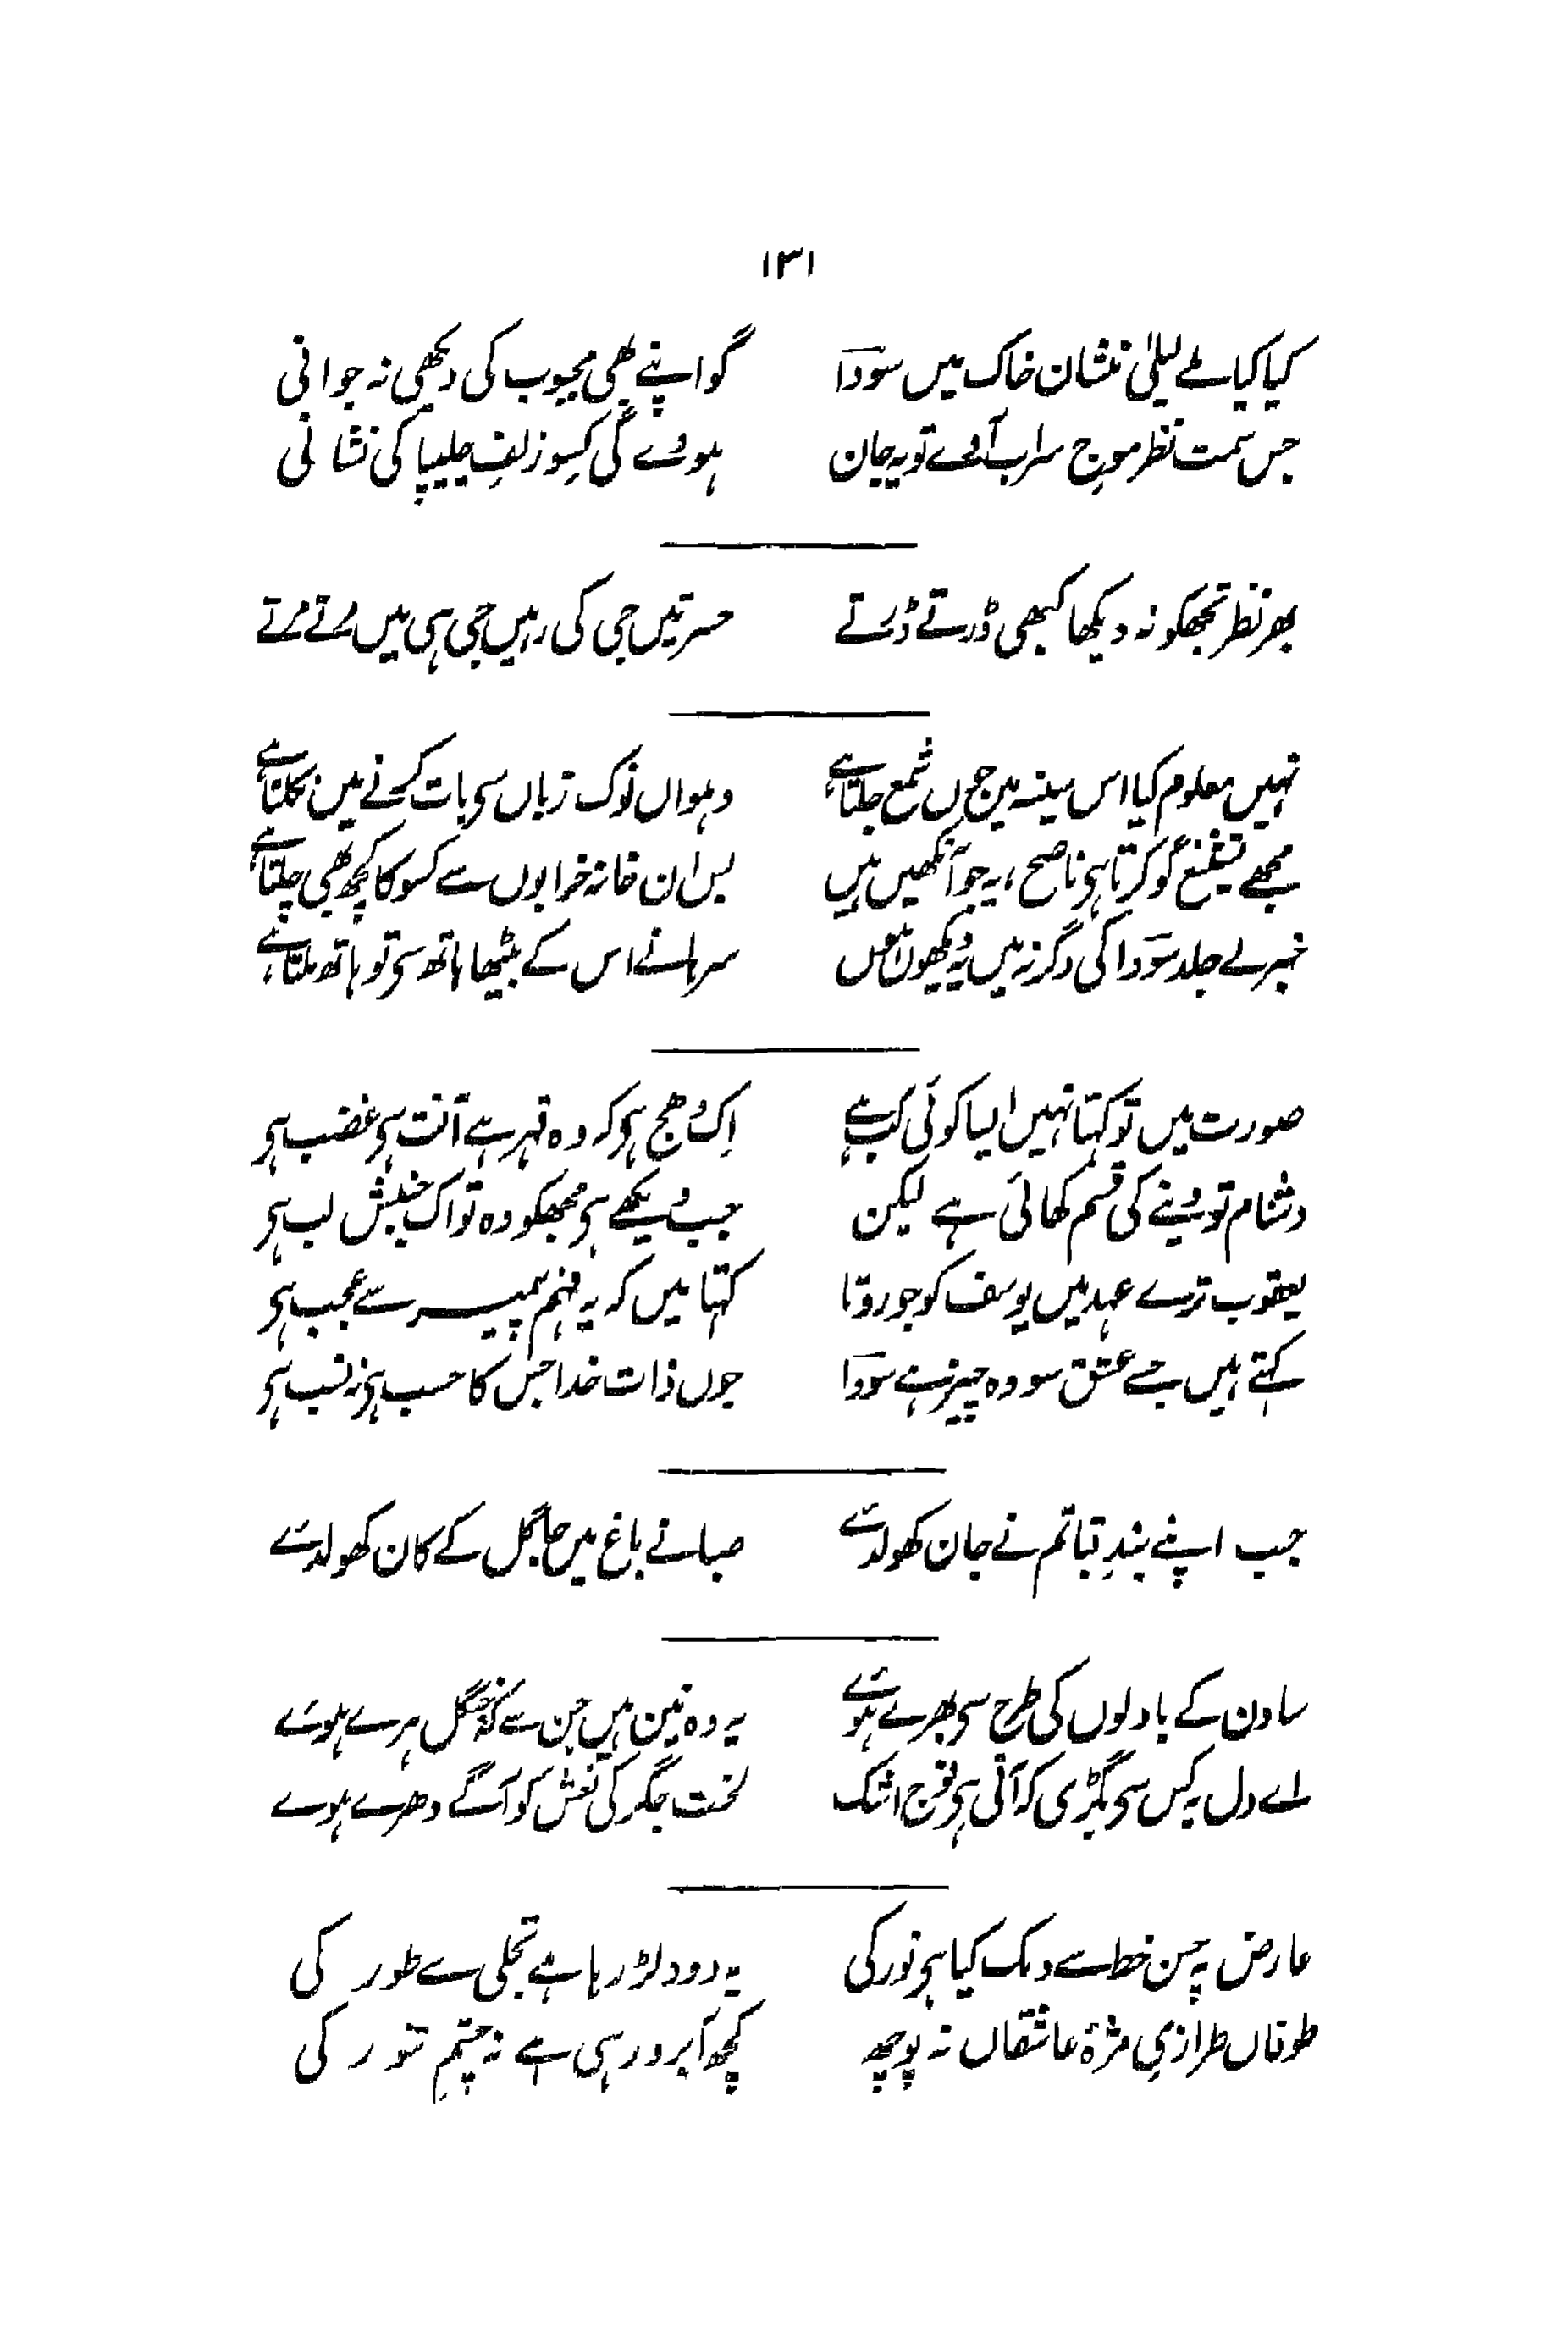 ۱۳۱
کیا کیا ملے لیلیٰ نشان خاک میں سودا گو اپنے بھی محبوب کی دیکھی نہ جوانی
جس سمت نظر موج سراب آوے تو یہ جان ہووے گی کِسو زلفِ چلیپا کی نشانی
بھر نظر تجھکو نہ دیکھا کبھی ڈرتے ڈرتے حسرتیں جی کی رہیں جی ہی میں مرتے مرتے
نہیں معلوم کیا اس سینہ میں جوں شمع جلتا ہے دہواں نوک زباں سی بات کرنے میں نکلتا ہے
مجھے تشنیع گو کرتا ہی ناصح، یہ جو آنکھیں ہیں بس ان خانہ خرابوں سے کسو کا کچھ بھی چلتا ہے
خبر لے جلد سودا کی وگرنہ میں یہ دیکھوں سرہانے اس کے بیٹھا ہاتھ سی تو ہاتھ ملتا ہے
صورت میں تو کہتا نہیں ایسا کوئی کب ہے اِک دھج ہی کہ وہ قہر ہے آفت ہی غضب ہی
دشنام تو دینے کی قسم کھائی ہے لیکن جب دیکھے ہی مجھکو وہ تو اک جنبش لب ہی
یعقوب ترے عہد میں یوسف کو جو روتا کہتا میں کہ یہ فہم پیمبر سے عجب ہی
کہتے ہیں جسے عشق سو وہ چیز ہے سودا جوں ذات خدا جس کا حسب ہی نہ نسب ہی
جب اپنے بندِ قبا تم نے جان کھولدئے صبا نے باغ میں جا گل کے کان کھولدئے
ساون کے بادلوں کی طرح سی بھرے ہوئے یہ وہ نین ہیں جن سے کہ جنگل ہرے ہوئے
اے دل یہ کس سی بگڑی کہ آتی ہی فوج اشک لخت جگر کی نعش کو آگے دھرے ہوے
عارض پہ حسن خط سے دمک کیا ہی نور کی یہ دود لڑ رہا ہے تجلی سے طور کی
طوفاں طرازیِ مژۂ عاشقاں نہ پوچھ کچھ آبرو رہی ہے نہ چشمِ تنور کی